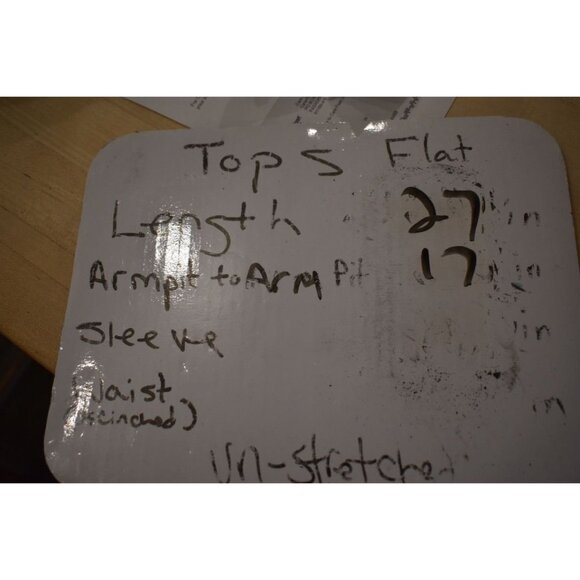 Tops Flat
Length - 27" in
Armpit to Arm Pit 17" in
Sleeve in
Waist in
Un-stretched